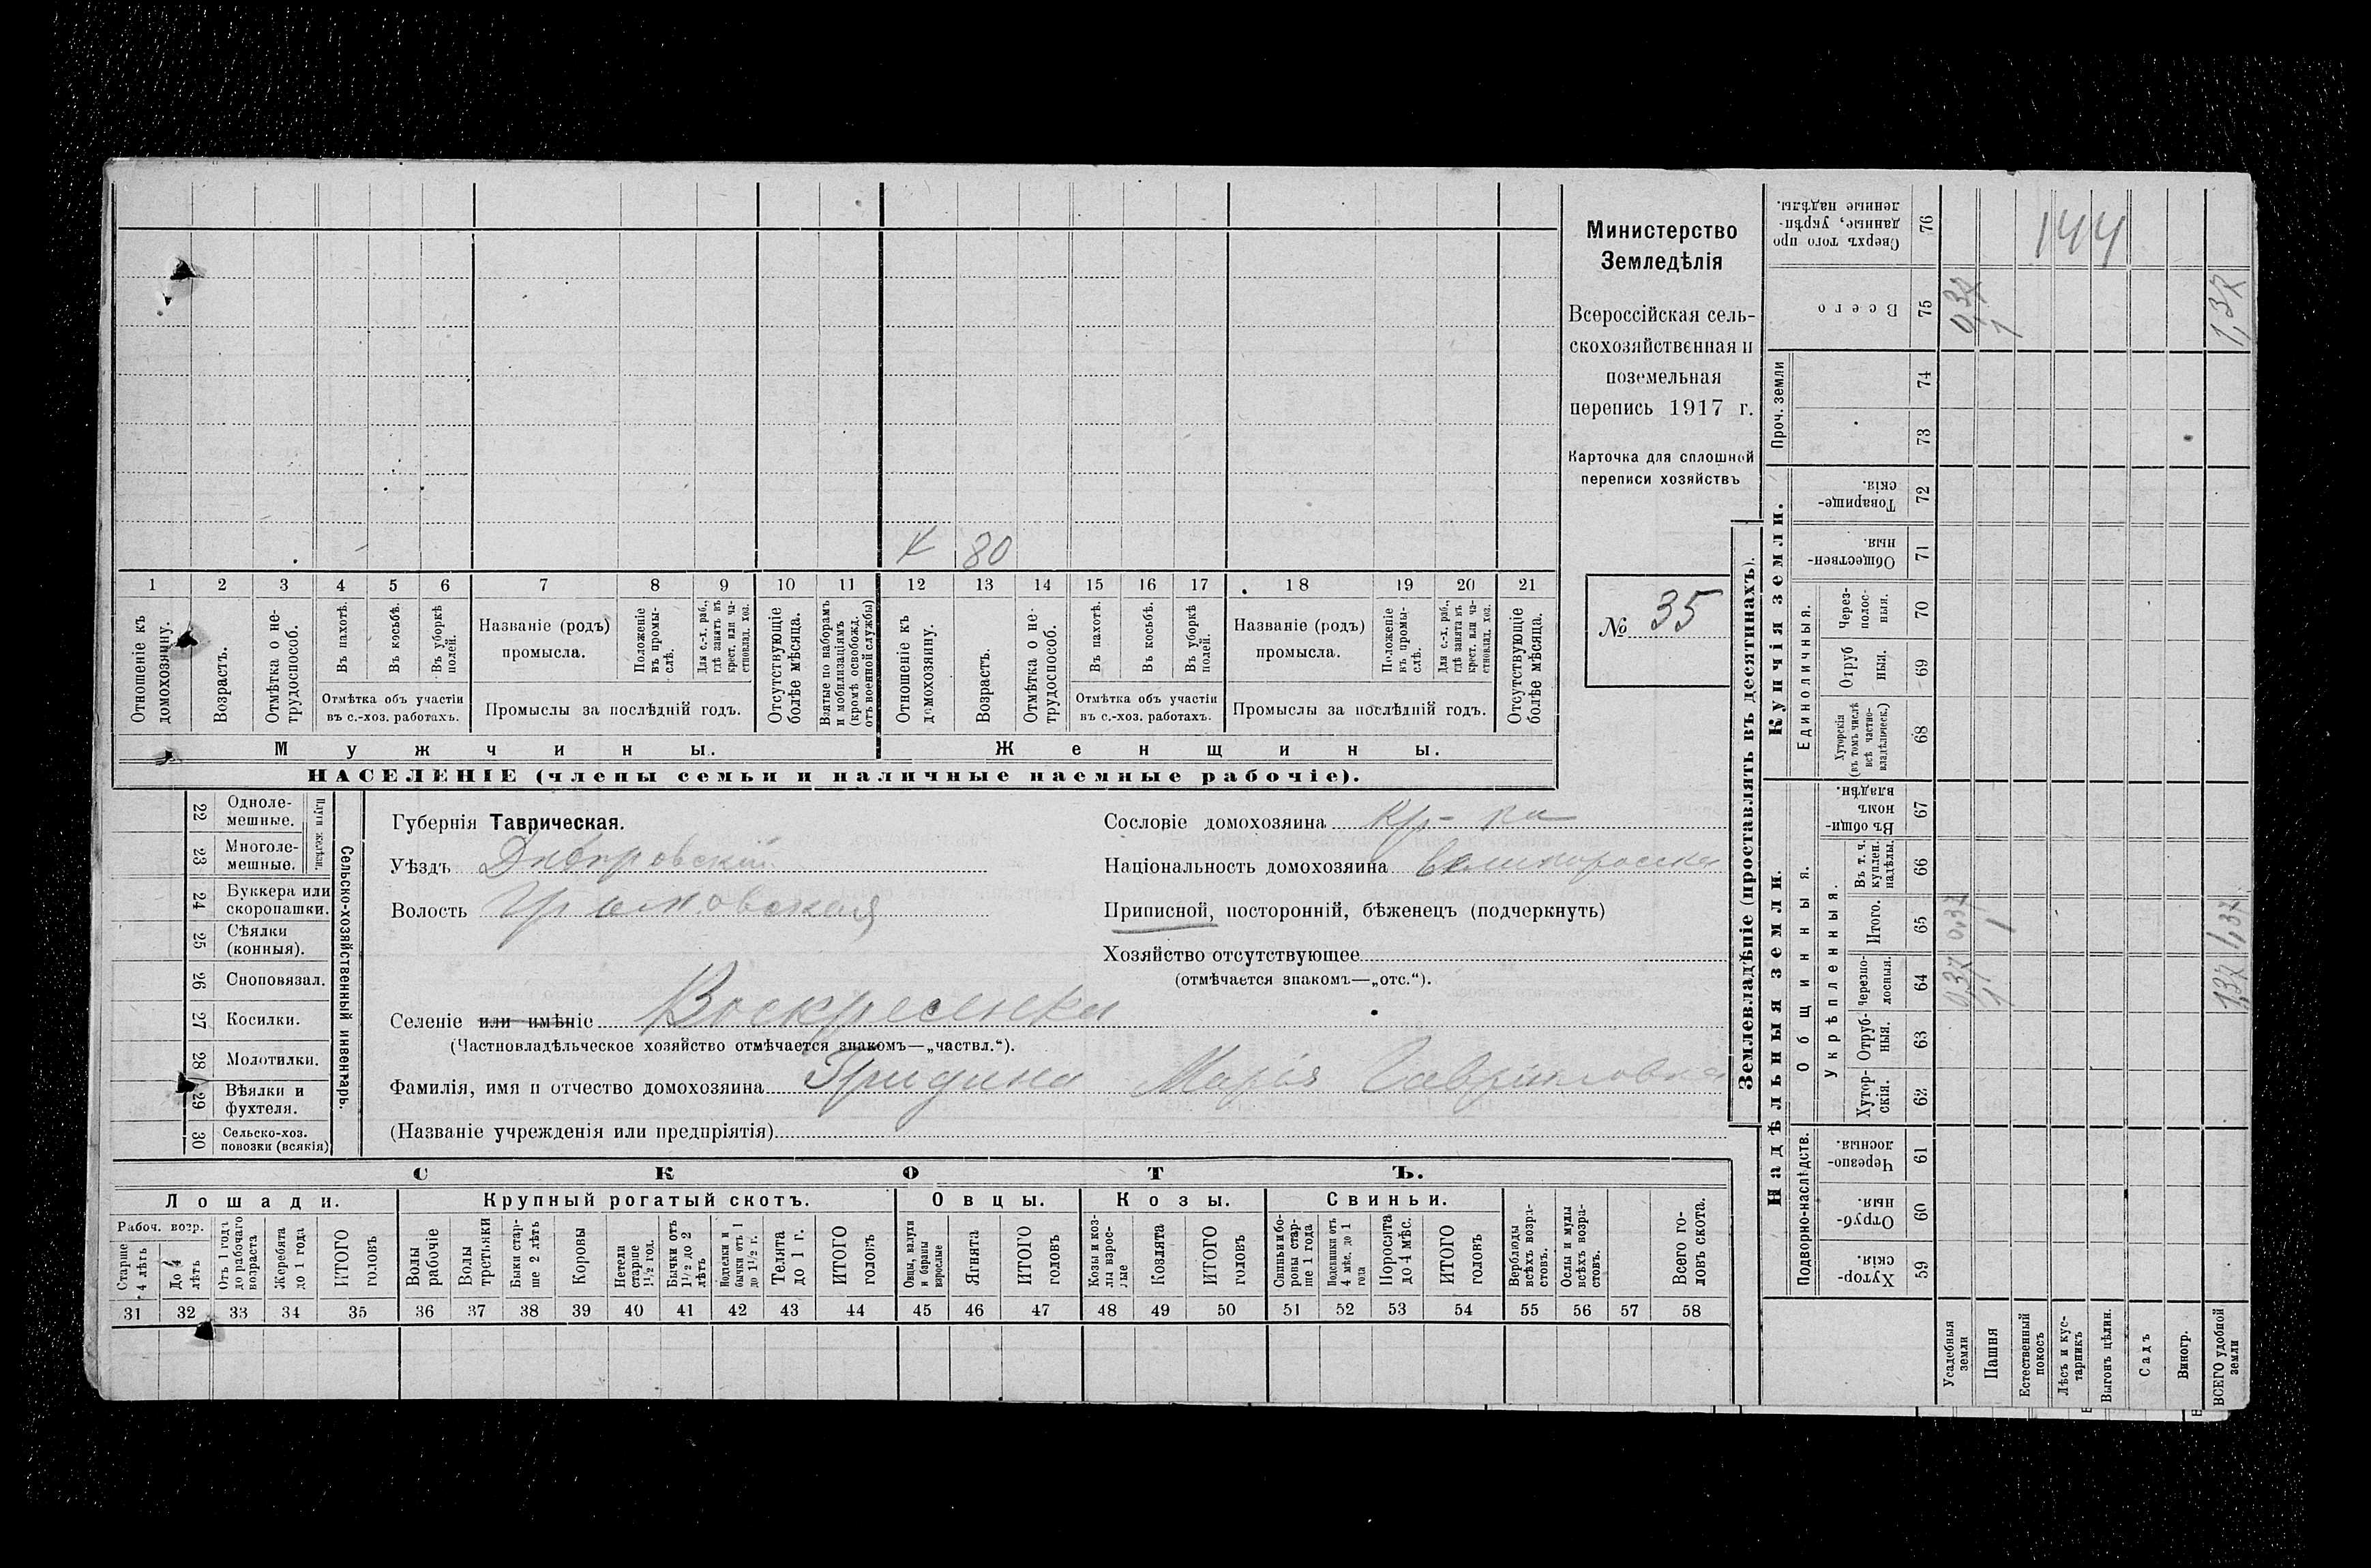 Х 80
1 2 3 4 5 6 7 8 9 10 11 12 13 14 15 16 17 18 19 20 21
Отношеніе къ домохозяину.
Возрастъ.
Отмѣтка о не-трудоспособ.
Въ пахотѣ.
Въ косьбѣ.
Въ уборкѣ полей.
Отмѣтка объ участіи
въ с.-хоз. работахъ.
Названіе (родъ)
промысла.
Положеніе въ промы-слѣ.
Для с.-х. раб., гдѣ занятъ въ крест. или ча-стновлад. хоз.
Промыслы за послѣдній годъ.
Отсутствующіе болѣе мѣсяца.
Взятые по наборамъ и мобилизаціямъ (кромѣ освобожд. отъ военной службы)
Отношеніе къ домохозяину.
Возрастъ.
Отмѣтка о не-трудоспособ.
Въ пахотѣ.
Въ косьбѣ.
Въ уборкѣ полей.
Отмѣтка объ участіи
въ с.-хоз. работахъ.
Названіе (родъ)
промысла.
Положеніе въ промы-слѣ.
Для с.-х. раб., гдѣ занята въ крест. или ча-стновлад. хоз.
Промыслы за послѣдній годъ.
Отсутствующіе болѣе мѣсяца.
Мужчины.
Женщины.
НАСЕЛЕНІЕ (члены семьи и наличные наемные рабочіе).
Министерство
Земледѣлія
Всероссійская сель-
скохозяйственная и
поземельная
перепись 1917 г.
Карточка для сплошной
переписи хозяйствъ
№ 35
22 Одноле-мешные.
23 Многоле-мешные.
Плуги желѣзн.
24 Буккера или скоропашки.
25 Сѣялки (конныя).
26 Сноповязал.
27 Косилки.
28 Молотилки.
29 Вѣялки и фухтеля.
30 Сельско-хоз. повозки (всякія)
Сельско-хозяйственный инвентарь.
Губернія Таврическая.
Уѣздъ Днѣпровскій
Волость
Селеніе или имѣніе Воскресенка
(Частновладѣльческое хозяйство отмѣчается знакомъ—„частвл.“).
Фамилія, имя и отчество домохозяина Гридина Марія Гавриловна
(Названіе учрежденія или предпріятія)
Сословіе домохозяина кр-ка
Національность домохозяина великоросска
Приписной, посторонній, бѣженецъ (подчеркнуть)
Хозяйство отсутствующее
(отмѣчается знакомъ—„отс.“).
СКОТЪ.
Лошади.
Рабоч. возр.
Старше 4 лѣтъ
До 4 лѣтъ
Отъ 1 года до рабочаго возраста
Жеребята до 1 года
ИТОГО головъ
Крупный рогатый скотъ.
Волы рабочіе
Волы третьяки
Быки стар-ше 2 лѣтъ
Коровы
Нетели старше 1½ год.
Бычки отъ 1½ до 2 лѣтъ
Подтелки и бычки отъ 1 до 1½ г.
Телята до 1 г.
ИТОГО головъ
Овцы.
Овцы, валухи и бараны взрослые
Ягнята
ИТОГО головъ
Козы.
Козы и коз-лы взрос-лые
Козлята
ИТОГО головъ
Свиньи.
Свиньи и бо-ровы стар-ше 1 года
Подсвинки отъ 4 мѣс. до 1 года
Поросята до 4 мѣс.
ИТОГО головъ
Верблюды всѣхъ возра-стовъ.
Ослы и мулы всѣхъ возра-стовъ.
Всего го-ловъ скота.
31 32 33 34 35 36 37 38 39 40 41 42 43 44 45 46 47 48 49 50 51 52 53 54 55 56 57 58
Землевладѣніе (проставлять въ десятинахъ).
76 Сверхъ того про-данные, укрѣп-ленные надѣлы.
144
75 Всего
0,37
1
1,37
Проч. земли
74
73
Купчія земли.
72 Товарище-скія.
71 Обществен-ныя.
Единоличныя.
70 Через-полос-ныя.
69 Отруб ныя.
68 Хуторскія (въ томъ числѣ всѣ частно-владѣльческ.)
Надѣльныя земли.
Общинныя.
67 Въ общи-номъ владѣн.
Укрѣпленныя.
66 Въ т. ч. куплен. надѣлы.
65 Итого.
0,37
1
1,37
64 Черезпо-лосныя.
0,37
1
1,37
63 Отруб-ныя.
62 Хутор-скія.
Подворно-наслѣдств.
61 Черезпо-лосныя.
60 Отруб-ныя.
59 Хутор-скія.
Усадебныя земли
Пашня
Естественный покосъ
Лѣсъ и кус-тарникъ
Выгонъ цѣлин.
Садъ
Виногр.
ВСЕГО удобной земли